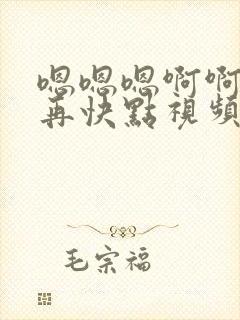 嗯嗯嗯啊啊
再快點視頻
毛宗福